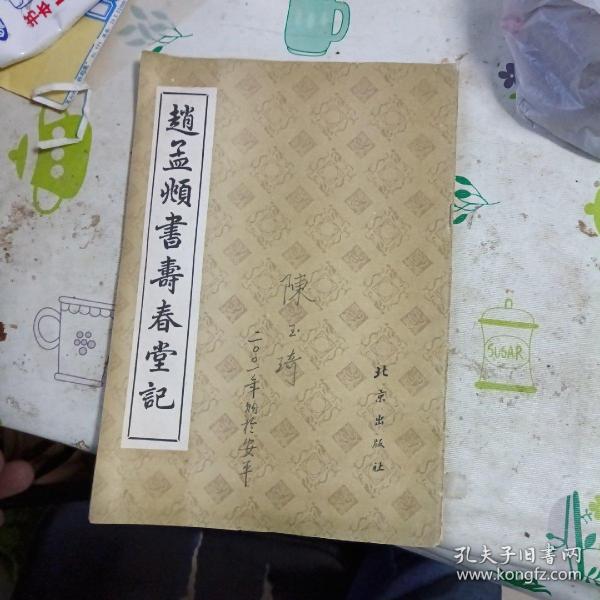 趙孟頫書壽春堂記
陳玉琦
二〇〇一年购於安平
北京出版社
SUGAR
孔夫子旧书网
www.kongfz.com